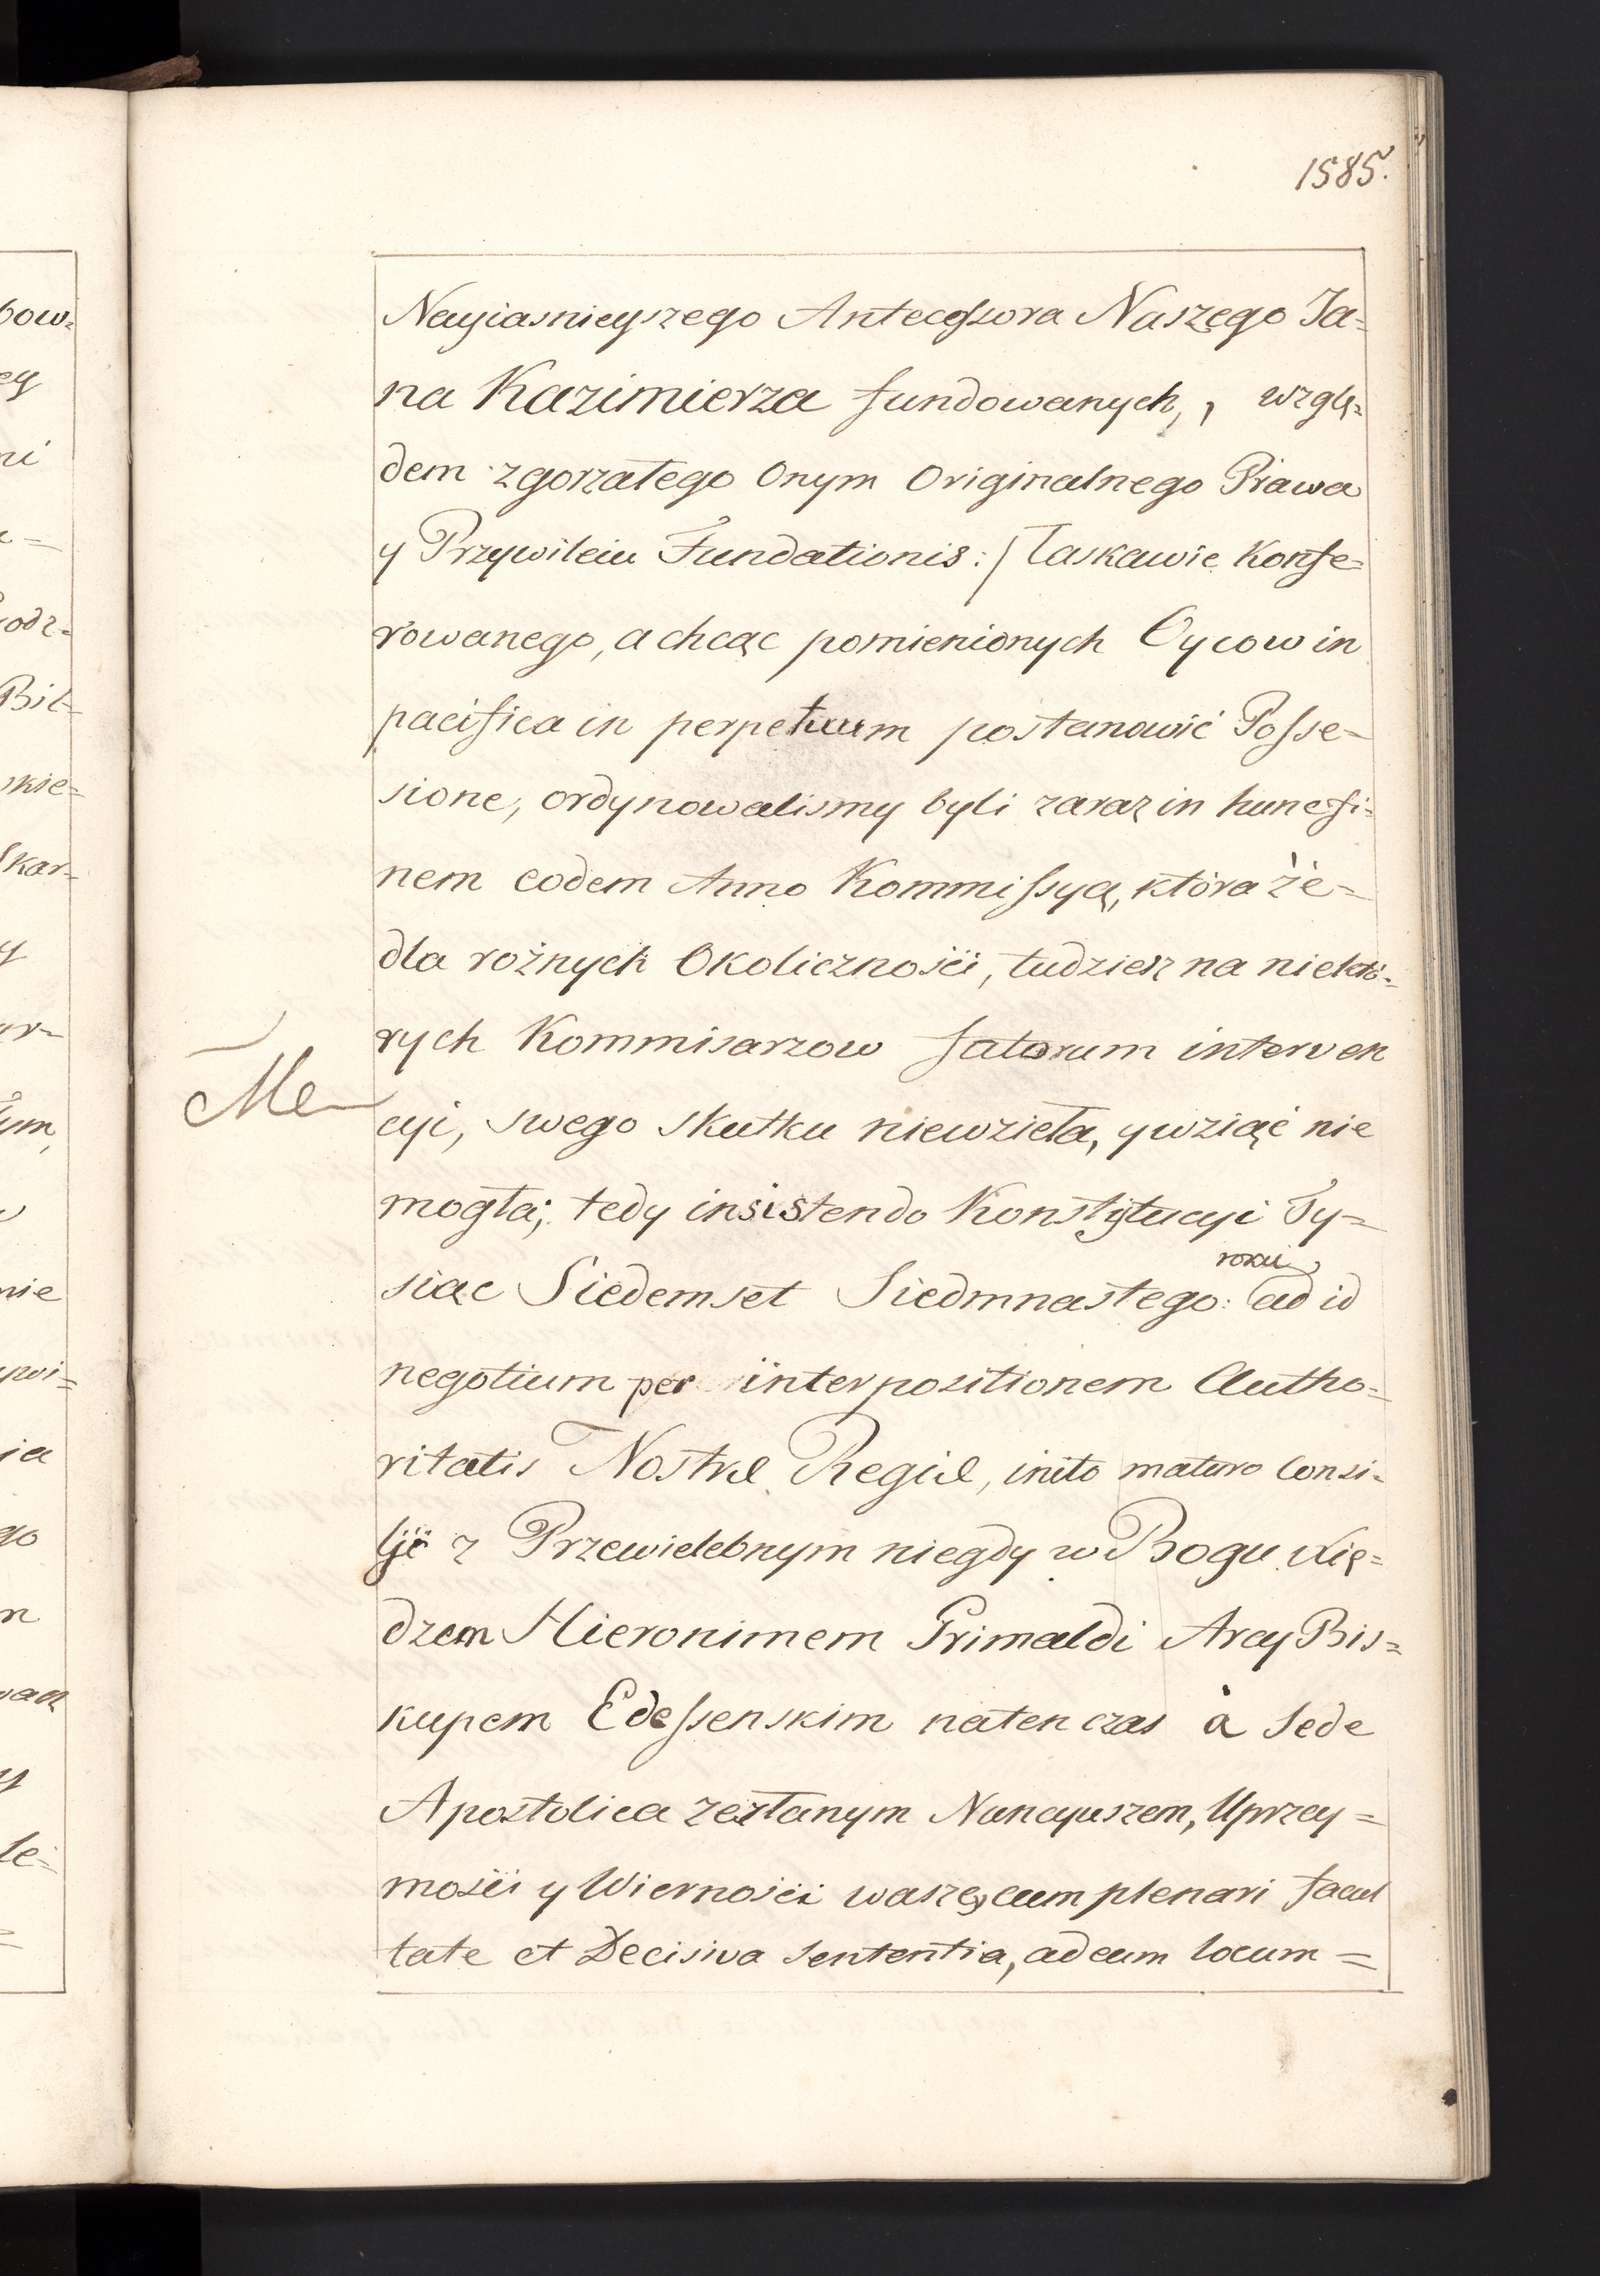 1585.
Nayiasnieyszego Antecessora Naszego Ja=
na Kazimierza fundowanych, , wzglę=
dem zgorzałego Onym Originalnego Prawa
y Przywileiu Fundationis :/ Łaskawie Konfe=
rowanego, a chcąc pomienionych Oycow in
pacifica in perpetuum postanowić Posse=
sione, ordynowalismy byli zaraz in hunc fi=
nem eodem Anno Kommissyą, która że=
dla rożnych Okolicznosći, tudziesz na niektó=
rych Kommisarzow fatorum interven
Me
cyi, swego skutku niewzieła, y wziąć nie
mogła; tedy insistendo Konstytucyi Ty=
roku
siąc Siedemset Siedmnastego: ad id
negotium per interpozitionem Autho=
ritatis Nostræ Regiæ, inito maturo Consi=
ljo z Przewielebnym niegdy w Bogu Xię=
dzem Hieronimem Grimaldi Arcy Bis=
kupem Edessenskim naten czas à Sede
Apostolica zesłanym Nuncyuszem, Uprzey=
mosći y Wiernosći waszę, cum plenari facul
tate et Decisiva Sententia, ad eum locum=
bow=
ey
ni
odz=
Bil=
skie=
skar=
y
ar=
ym,
nie
ia
go
n
y
le=